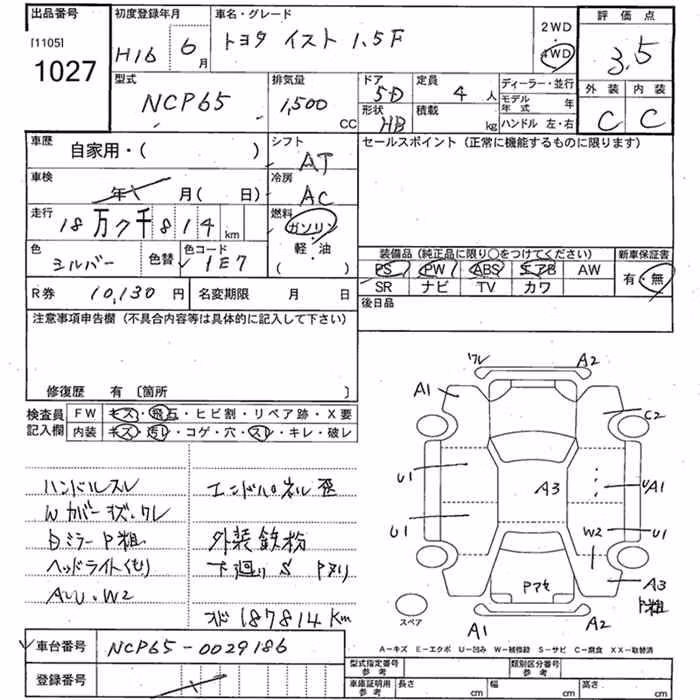 出品番号 初度登録年月 車名・グレード 2WD 評価点
[1105] H16 6月 トヨタ イスト 1.5F 4WD 3.5
1027
型式 排気量 ドア 定員 ディーラー・並行 外装 内装
NCP65 1,500 CC 5D 4人 モデル年式 年 C C
形状 HB 積載 kg ハンドル 左・右
車歴 自家用・( ) シフト AT セールスポイント (正常に機能するものに限ります)
車検 年 月(日) 冷房 AC
走行 18万7千814km 燃料 ガソリン
軽・油
( )
色 シルバー 色替 色コード 1E7
装備品 (純正品に限り○をつけてください) 新車保証書
PS PW ABS エアB AW 有・無
SR ナビ TV カワ
R券 10,130円 名変期限 月 日 後日品
注意事項申告欄 (不具合内容等は具体的に記入して下さい)
修復歴 有 〔箇所 〕
検査員記入欄 FW キズ・飛石・ヒビ割・リペア跡・X要
内装 キズ・汚レ・コゲ・穴・スレ・キレ・破レ
ハンドルスレ エンドパネル歪
Wカバーキズ・ワレ
白ミラーP粗 外装鉄粉
ヘッドライトくもり 下廻りS Pヌリ
AUU・W2
メオ 187814Km
ワレ A2
A1 C2
U1 A3 UA1
U1 W2 U1
Pマセ A3
P粗
スペア A1 A2
A-キズ E-エクボ U-凹み W-補修跡 S-サビ C-腐食 XX-取替済
車台番号 NCP65-0029186
登録番号
型式指定番号 参考 類別区分番号 参考
車庫証明用 参考 長さ cm 幅 cm 高さ cm